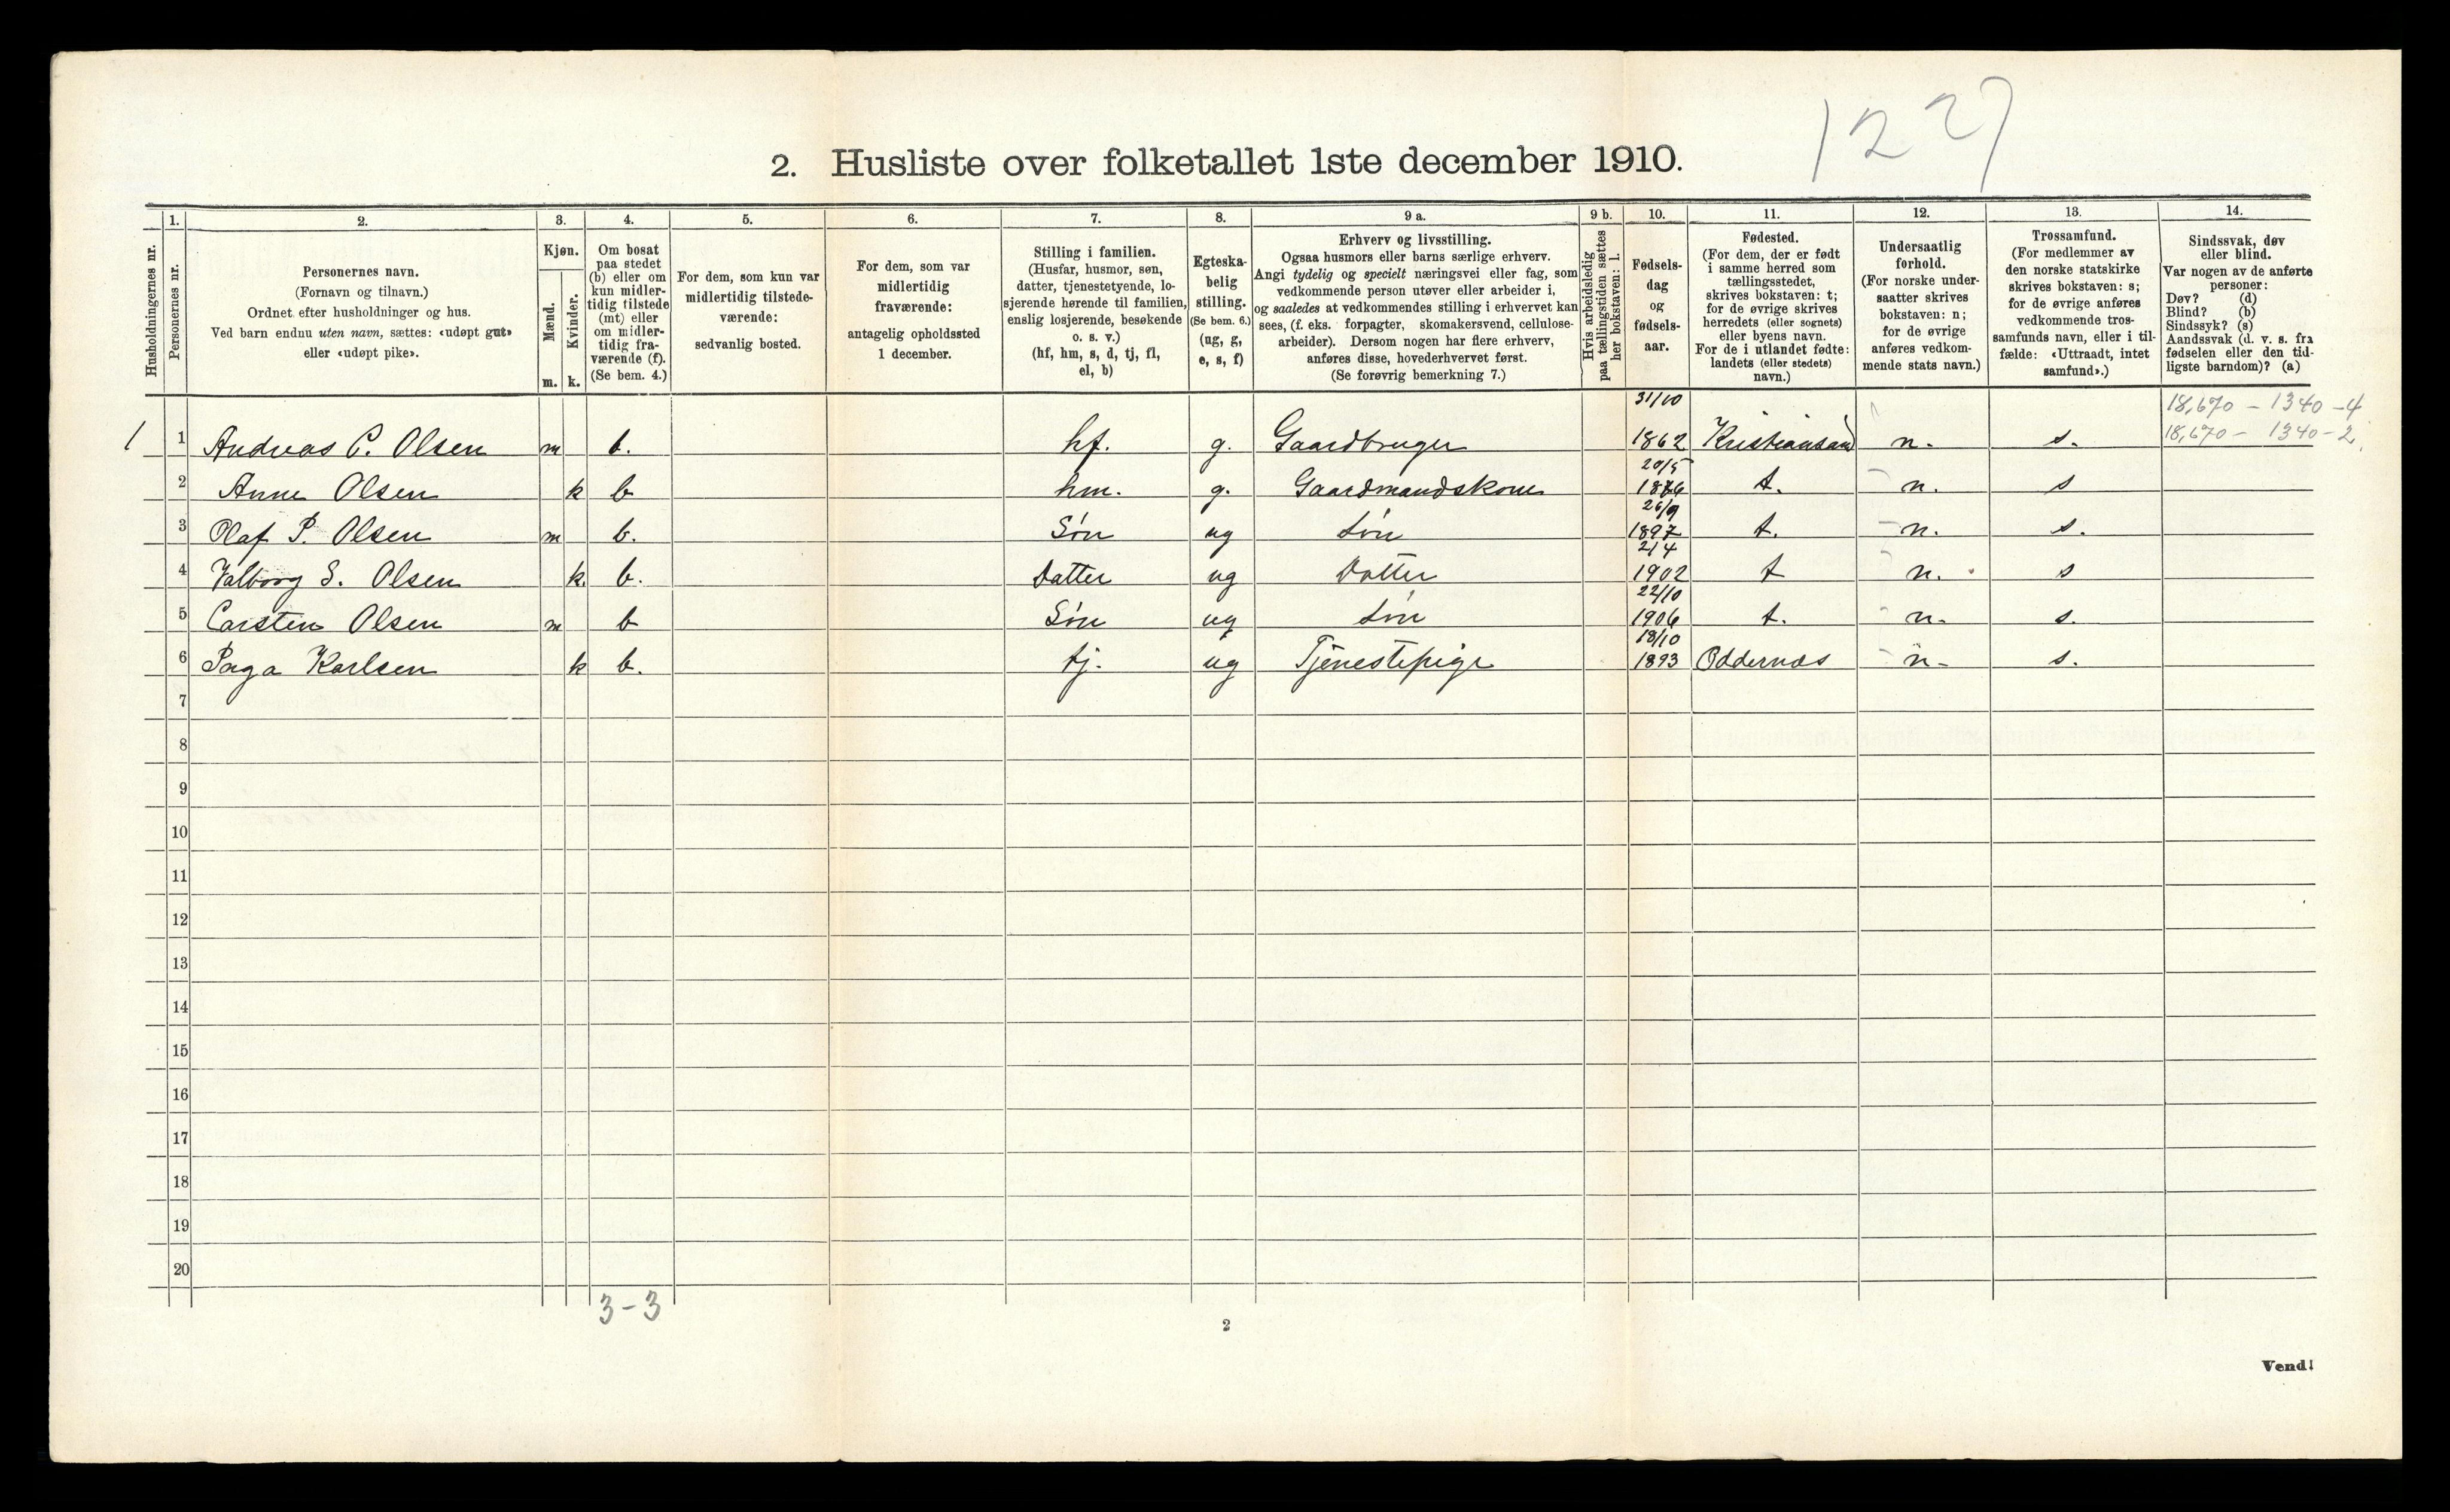 1227
2. Husliste over folketallet 1ste december 1910.
Husholdningernes nr.
1. Personernes nr.
2. Personernes navn.
(Fornavn og tilnavn.)
Ordnet efter husholdninger og hus.
Ved barn endnu uten navn, sættes: «udøpt gut»
eller «udøpt pike».
3. Kjøn.
Mænd. m.
Kvinder. k.
4. Om bosat
paa stedet
(b) eller om
kun midler-
tidig tilstede
(mt) eller
om midler-
tidig fra-
værende (f).
(Se bem. 4.)
5. For dem, som kun var
midlertidig tilstede-
værende:
sedvanlig bosted.
6. For dem, som var
midlertidig
fraværende:
antagelig opholdssted
1 december.
7. Stilling i familien.
(Husfar, husmor, søn,
datter, tjenestetyende, lo-
sjerende hørende til familien,
enslig losjerende, besøkende
o. s. v.)
(hf, hm, s, d, tj, fl,
el, b)
8. Egteska-
belig
stilling.
(Se bem. 6.)
(ug, g,
e, s, f)
9 a. Erhverv og livsstilling.
Ogsaa husmors eller barns særlige erhverv.
Angi tydelig og specielt næringsvei eller fag, som
vedkommende person utøver eller arbeider i,
og saaledes at vedkommendes stilling i erhvervet kan
sees, (f. eks. forpagter, skomakersvend, cellulose-
arbeider). Dersom nogen har flere erhverv,
anføres disse, hovederhvervet først.
(Se forøvrig bemerkning 7.)
9 b. Hvis arbeidsledig
paa tællingstiden sættes
her bokstaven: l.
10. Fødsels-
dag
og
fødsels-
aar.
11. Fødested.
(For dem, der er født
i samme herred som
tællingsstedet,
skrives bokstaven: t;
for de øvrige skrives
herredets (eller sognets)
eller byens navn.
For de i utlandet fødte:
landets (eller stedets)
navn.)
12. Undersaatlig
forhold.
(For norske under-
saatter skrives
bokstaven: n;
for de øvrige
anføres vedkom-
mende stats navn.)
13. Trossamfund.
(For medlemmer av
den norske statskirke
skrives bokstaven: s;
for de øvrige anføres
vedkommende tros-
samfunds navn, eller i til-
fælde: «Uttraadt, intet
samfund».)
14. Sindssvak, døv
eller blind.
Var nogen av de anførte
personer:
Døv? (d)
Blind? (b)
Sindssyk? (s)
Aandssvak (d. v. s. fra
fødselen eller den tid-
ligste barndom)? (a)
18,670 – 1340 – 4
18,670 – 1340 – 2
1 1 Andreas P. Olsen m b. hf. g. Gaardbruger 31/10 1862 Kristiansand n. s.
2 Anne Olsen k b hm. g. Gaardmandskone 20/5 1876 t. n. s
3 Olaf P. Olsen m b. Søn ug Søn 26/9 1897 t. n. s.
4 Valborg S. Olsen k. b. Datter ug Datter 2/4 1902 t n. s
5 Carsten Olsen m b Søn ug Søn 22/10 1906 t. n. s.
6 Karlsen k b. tj. ug Tjenestepige 18/10 1893 Oddernæs n- s.
7
8
9
10
11
12
13
14
15
16
17
18
19
20
3-3
2
Vend!